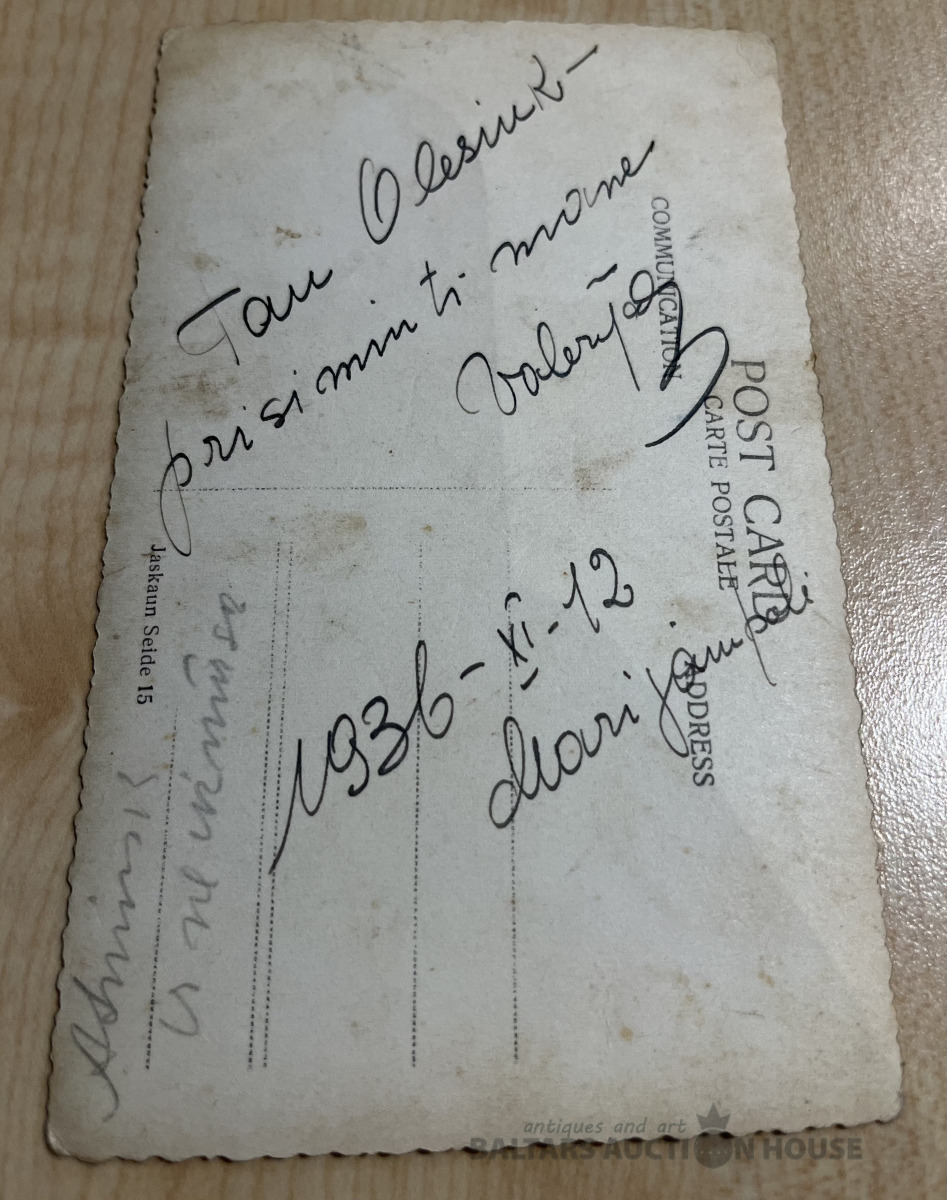 Tau Olesiuk-
prisiminti mane
Valerija
1936-XI-12
Marijampolė
POST CARD
CARTE POSTALE
COMMUNICATION
ADDRESS
Jaskaun Seide 15
antiques and art
BALTARS AUCTION HOUSE